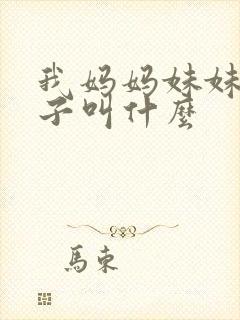 我妈妈妹妹
子叫什麼
馬東